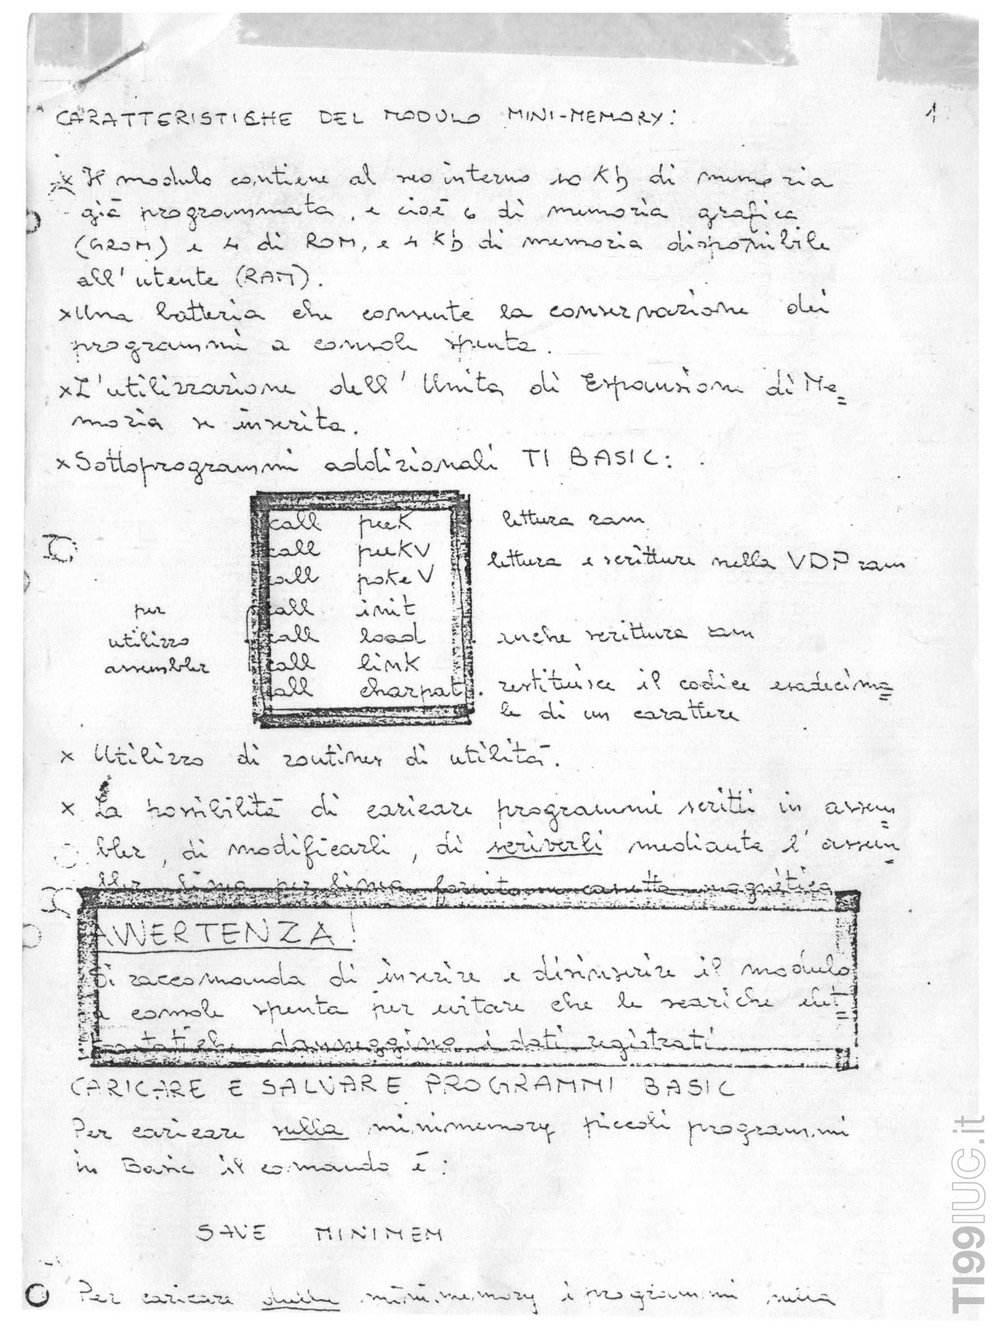 CARATTERISTICHE DEL MODULO MINI-MEMORY:
1
x Il modulo contiene al suo interno 10 Kb di memoria
già programmata, e cioè 6 di memoria grafica
(GROM) e 4 di ROM, e 4 Kb di memoria disponibile
all'utente (RAM).
x Una batteria che consente la conservazione dei
programmi a console spenta.
x L'utilizzazione dell'Unità di Espansione di Me=
moria se inserita.
x Sottoprogrammi addizionali TI BASIC:
call peek lettura ram
call peekV
lettura e scrittura nella VDP ram
call pokeV
per
call init
utilizzo
call load anche scrittura ram
assembler
call link
call charpat. restituisce il codice esadecima=
le di un carattere
x Utilizzo di routines di utilità.
x La possibilità di caricare programmi scritti in assem=
bler, di modificarli, di scriverli mediante l'assem=
bler linea per linea fornito su cassetta magnetica
AVVERTENZA!
Si raccomanda di inserire e disinserire il modulo
a console spenta per evitare che le scariche elet=
trostatiche danneggino i dati registrati
CARICARE E SALVARE PROGRAMMI BASIC
Per caricare sulla minimemory piccoli programmi
in Basic il comando è:
SAVE MINIMEM
Per caricare dalla minimemory i programmi sulla
TI99IUC.it